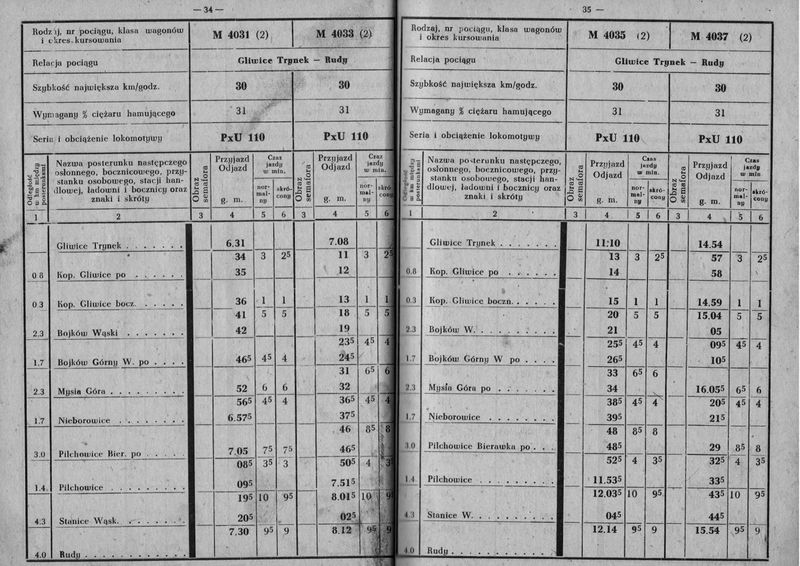 — 34 —
Rodzaj, nr pociągu, klasa wagonów
i okres kursowania
M 4031 (2)
M 4033 (2)
Relacja pociągu
Gliwice Trynek — Rudy
Szybkość największa km/godz.
30
30
Wymagany % ciężaru hamującego
31
31
Seria i obciążenie lokomotywy
PxU 110
PxU 110
Odległość w km między posterunkami
Nazwa posterunku następczego
osłonnego, bocznicowego, przy-
stanku osobowego, stacji han-
dlowej, ładowni i bocznicy oraz
znaki i skróty
Obraz semafora
Przyjazd
Odjazd
g. m.
Czas
jazdy
w min.
nor-
mal-
ny
skró-
cony
Obraz semafora
Przyjazd
Odjazd
g. m.
Czas
jazdy
w min.
nor-
mal-
ny
skró-
cony
1 2 3 4 5 6 3 4 5 6
Gliwice Trynek . . . . . . . 6.31 7.08
34 3 2⁵ 11 3 2⁵
0 8 Kop. Gliwice po . . . . . . 35 12
0.3 Kop. Gliwice bocz. . . . . . 36 1 1 13 1 1
41 5 5 18 5 5
2.3 Bojków Wąski . . . . . . . 42 19
23⁵ 4⁵ 4
1.7 Bojków Górny W. po . . . . 46⁵ 4⁵ 4 24⁵
31 6⁵ 6
2.3 Mysia Góra . . . . . . . . . 52 6 6 32
56⁵ 4⁵ 4 36⁵ 4⁵ 4
1.7 Nieborowice . . . . . . . . 6.57⁵ 37⁵
46 8⁵ 8
3.0 Pilchowice Bier. po . . . . . 7.05 7⁵ 7⁵ 46⁵
08⁵ 3⁵ 3 50⁵ 4 3
1.4. Pilchowice . . . . . . . . . 09⁵ 7.51⁵
19⁵ 10 9⁵ 8.01⁵ 10 9
4.3 Stanice Wąsk. . . . . . . . 20⁵ 02⁵
7.30 9⁵ 9 8.12 9⁵ 9
4.0 Rudy . . . . . . . . . . . .
35 —
Rodzaj, nr pociągu, klasa wagonów
i okres kursowania
M 4035 (2)
M 4037 (2)
Relacja pociągu
Gliwice Trynek — Rudy
Szybkość największa km/godz.
30
30
Wymagany % ciężaru hamującego
31
31
Seria i obciążenie lokomotywy
PxU 110
PxU 110
Odległość w km między posterunkami
Nazwa posterunku następczego,
osłonnego, bocznicowego, przy-
stanku osobowego, stacji han-
dlowej, ładowni i bocznicy oraz
znaki i skróty
Obraz semafora
Przyjazd
Odjazd
g. m.
Czas
jazdy
w min.
nor-
mal-
ny
skró-
cony
Obraz semafora
Przyjazd
Odjazd
g. m.
Czas
jazdy
w min.
nor-
mal-
ny
skró-
cony
1 2 3 4 5 6 3 4 5 6
Gliwice Trynek . . . . . . . 11.10 14.54
13 3 2⁵ 57 3 2⁵
0.8 Kop. Gliwice po . . . . . . 14 58
0.3 Kop. Gliwice boczn. . . . . . 15 1 1 14.59 1 1
20 5 5 15.04 5 5
2.3 Bojków W. . . . . . . . . . 21 05
25⁵ 4⁵ 4 09⁵ 4⁵ 4
1.7 Bojków Górny W po . . . . 26⁵ 10⁵
33 6⁵ 6
2.3 Mysia Góra po . . . . . . . 34 16.05⁵ 6⁵ 6
38⁵ 4⁵ 4 20⁵ 4⁵ 4
1.7 Nieborowice . . . . . . . . 39⁵ 21⁵
48 8⁵ 8
3.0 Pilchowice Bierawka po . . . 48⁵ 29 8⁵ 8
52⁵ 4 3⁵ 32⁵ 4 3⁵
1.4 Pilchowice . . . . . . . . . 11.53⁵ 33⁵
12.03⁵ 10 9⁵ 43⁵ 10 9⁵
4.3 Stanice W. . . . . . . . . . 04⁵ 44⁵
12.14 9⁵ 9 15.54 9⁵ 9
4.0 Rudy . . . . . . . . . . . .